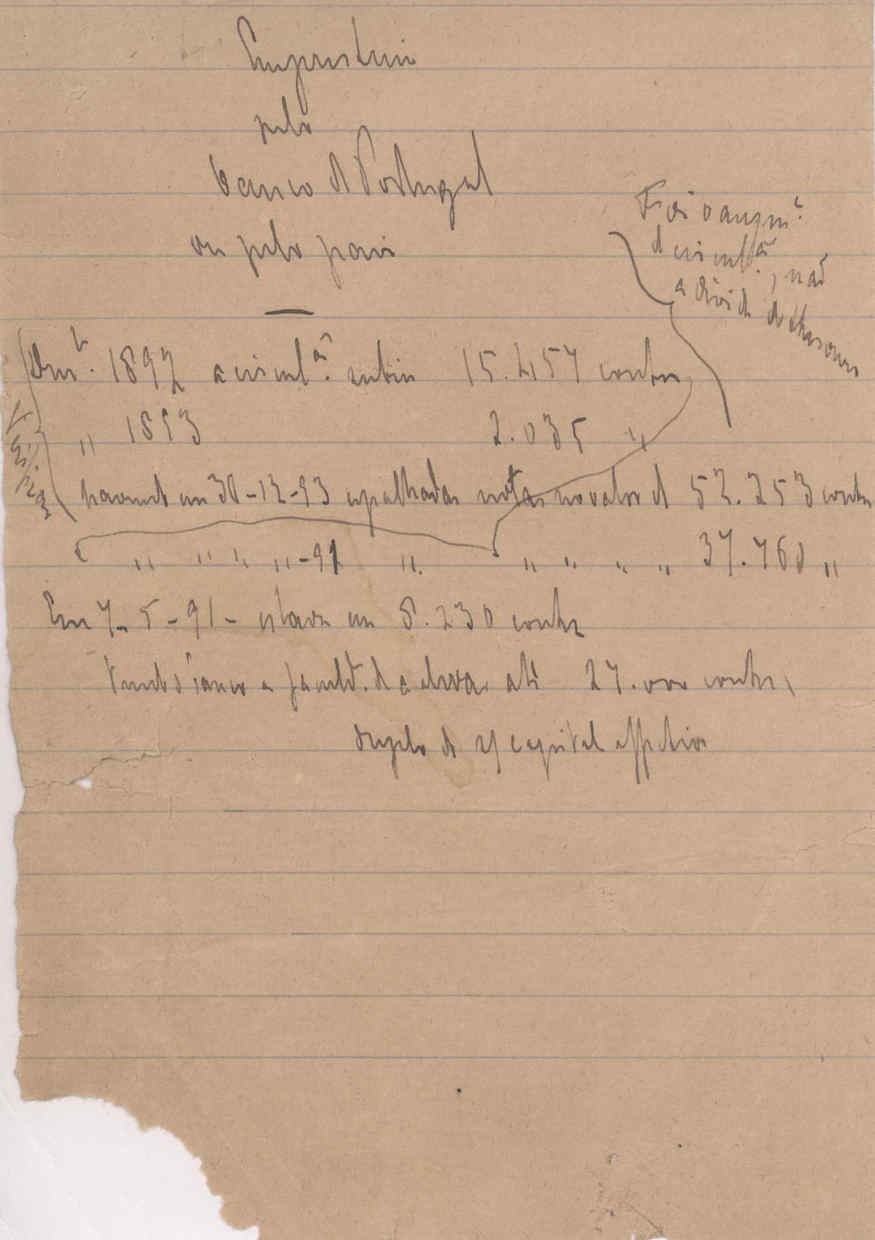 Emprestimo
pelo
banco de Portugal
ou pelo paiz
Foi o augm.to
d circul.ão, não
a divida do thesouro
Em 1892 a circul.ão subiu 15.457 contos
,, 1893 2.035 ,,
havendo em 30-12-93 espalhadas notas no valor de 52.253 contos
,, ,, ,, ,,-91 ,, ,, ,, ,, ,, 37.760 ,,
Em 7-5-91- estava em 8.230 contos
tendo o banco a facultd. de a elevar até 27.000 contos,
duplo do seu capital effectivo